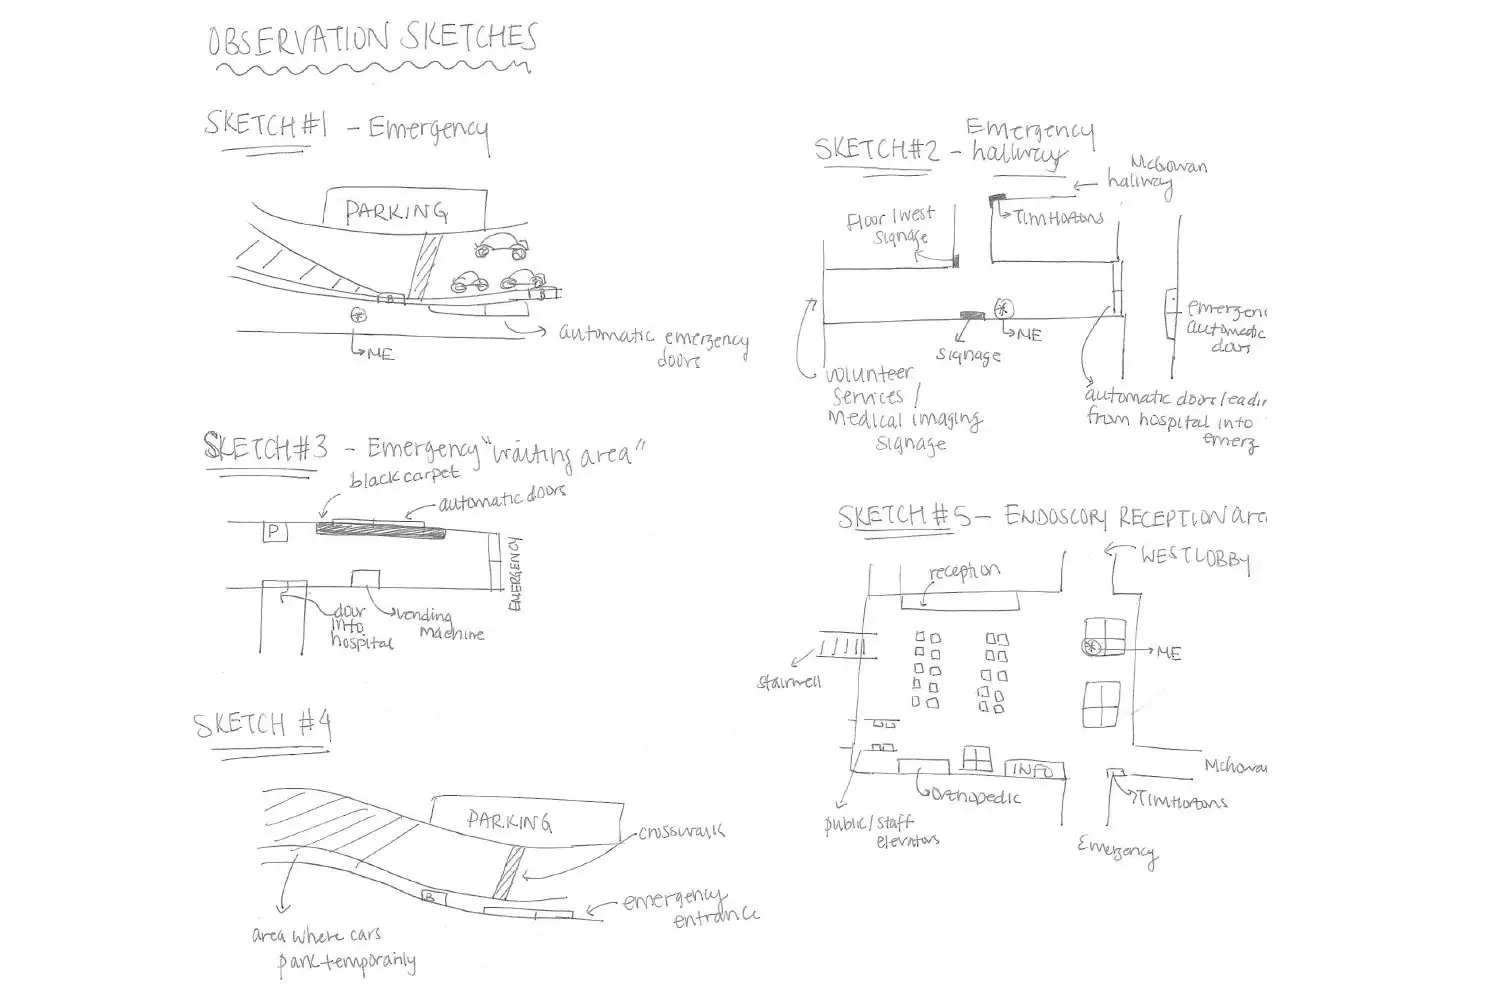 OBSERVATION SKETCHES
SKETCH #1 - Emergency
PARKING
B
B
automatic emergency
doors
ME
SKETCH #2 - Emergency
hallway
McGowan
hallway
Tim Hortons
Floor 1 west
signage
ME
signage
emergenc
automatic
doors
volunteer
services/
Medical imaging
signage
automatic doors leadin
from hospital into
emerg
SKETCH #3 - Emergency "waiting area"
black carpet
automatic doors
P
EMERGENCY
door
into
hospital
vending
machine
SKETCH #4
PARKING
crosswalk
B
emergency
entrance
area where cars
park temporarily
SKETCH #5 - ENDOSCOPY RECEPTION are
WEST LOBBY
reception
ME
stairwell
INFO
McGowan
Tim Hortons
orthopedic
public/staff
elevators
Emergency